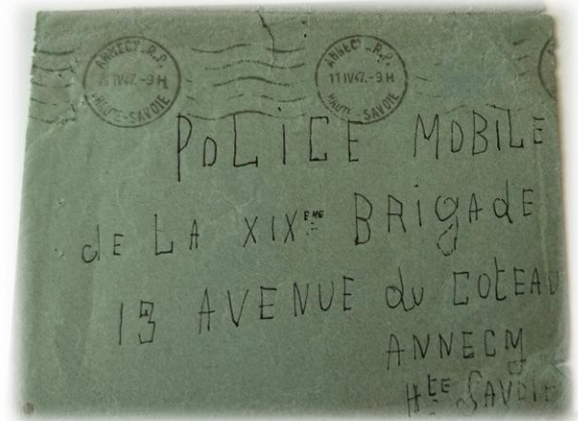 ANNECY R.P.
11 IV 47.-9H
HAUTE-SAVOIE
ANNECY R.P.
11 IV 47.-9H
HAUTE-SAVOIE
POLICE MOBILE
dE LA XIXEME BRIgAdE
13 AVENUE du COtEAU
ANNECY
HtE SAVOIE